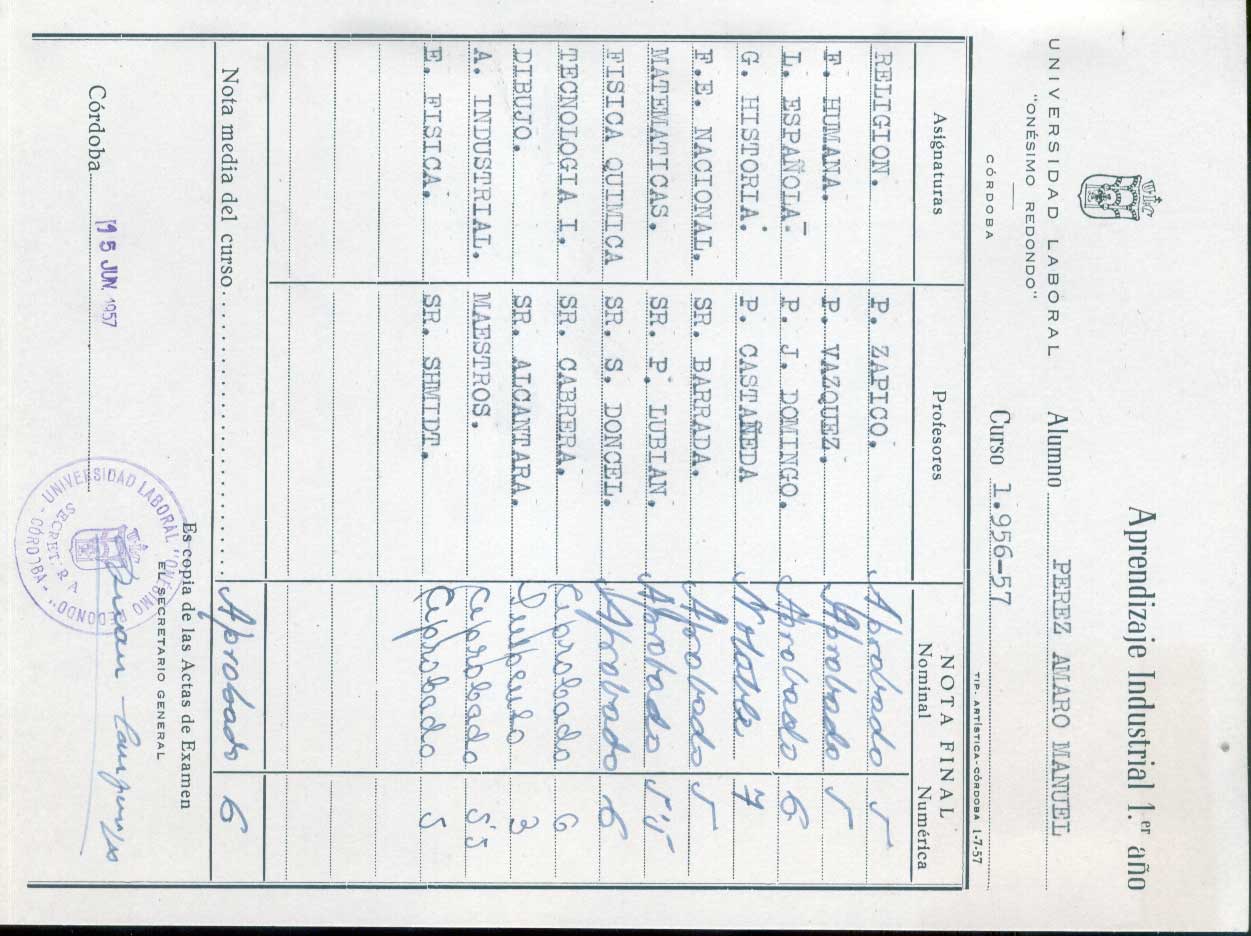 Aprendizaje Industrial 1.er año
UNIVERSIDAD LABORAL
"ONÉSIMO REDONDO"
CÓRDOBA
Alumno PEREZ AMARO MANUEL
Curso 1.956-57
TIP. ARTÍSTICA-CÓRDOBA 1-7-57
Asignaturas Profesores NOTA FINAL
Nominal Numérica
RELIGION. P. ZAPICO. Aprobado 5
F. HUMANA. P. VAZQUEZ. Aprobado 5
L. ESPAÑOLA. P. J. DOMINGO. Aprobado 6
G. HISTORIA. P. CASTAÑEDA Notable 7
F.E. NACIONAL. SR. BARRADA. Aprobado 5
MATEMATICAS. SR. P. LUBIAN. Aprobado 5'5
FISICA QUIMICA SR. S. DONCEL. Aprobado 6
TECNOLOGIA I. SR. CABRERA. Aprobado 6
DIBUJO. SR. ALCANTARA. 3
A. INDUSTRIAL. MAESTROS. Aprobado 5'5
E. FISICA. SR. SHMIDT. Aprobado 5
Nota media del curso Aprobado 6
Es copia de las Actas de Examen
EL SECRETARIO GENERAL
Córdoba 15 JUN. 1957
UNIVERSIDAD LABORAL "ONESIMO REDONDO" - CÓRDOBA -
SECRETARIA